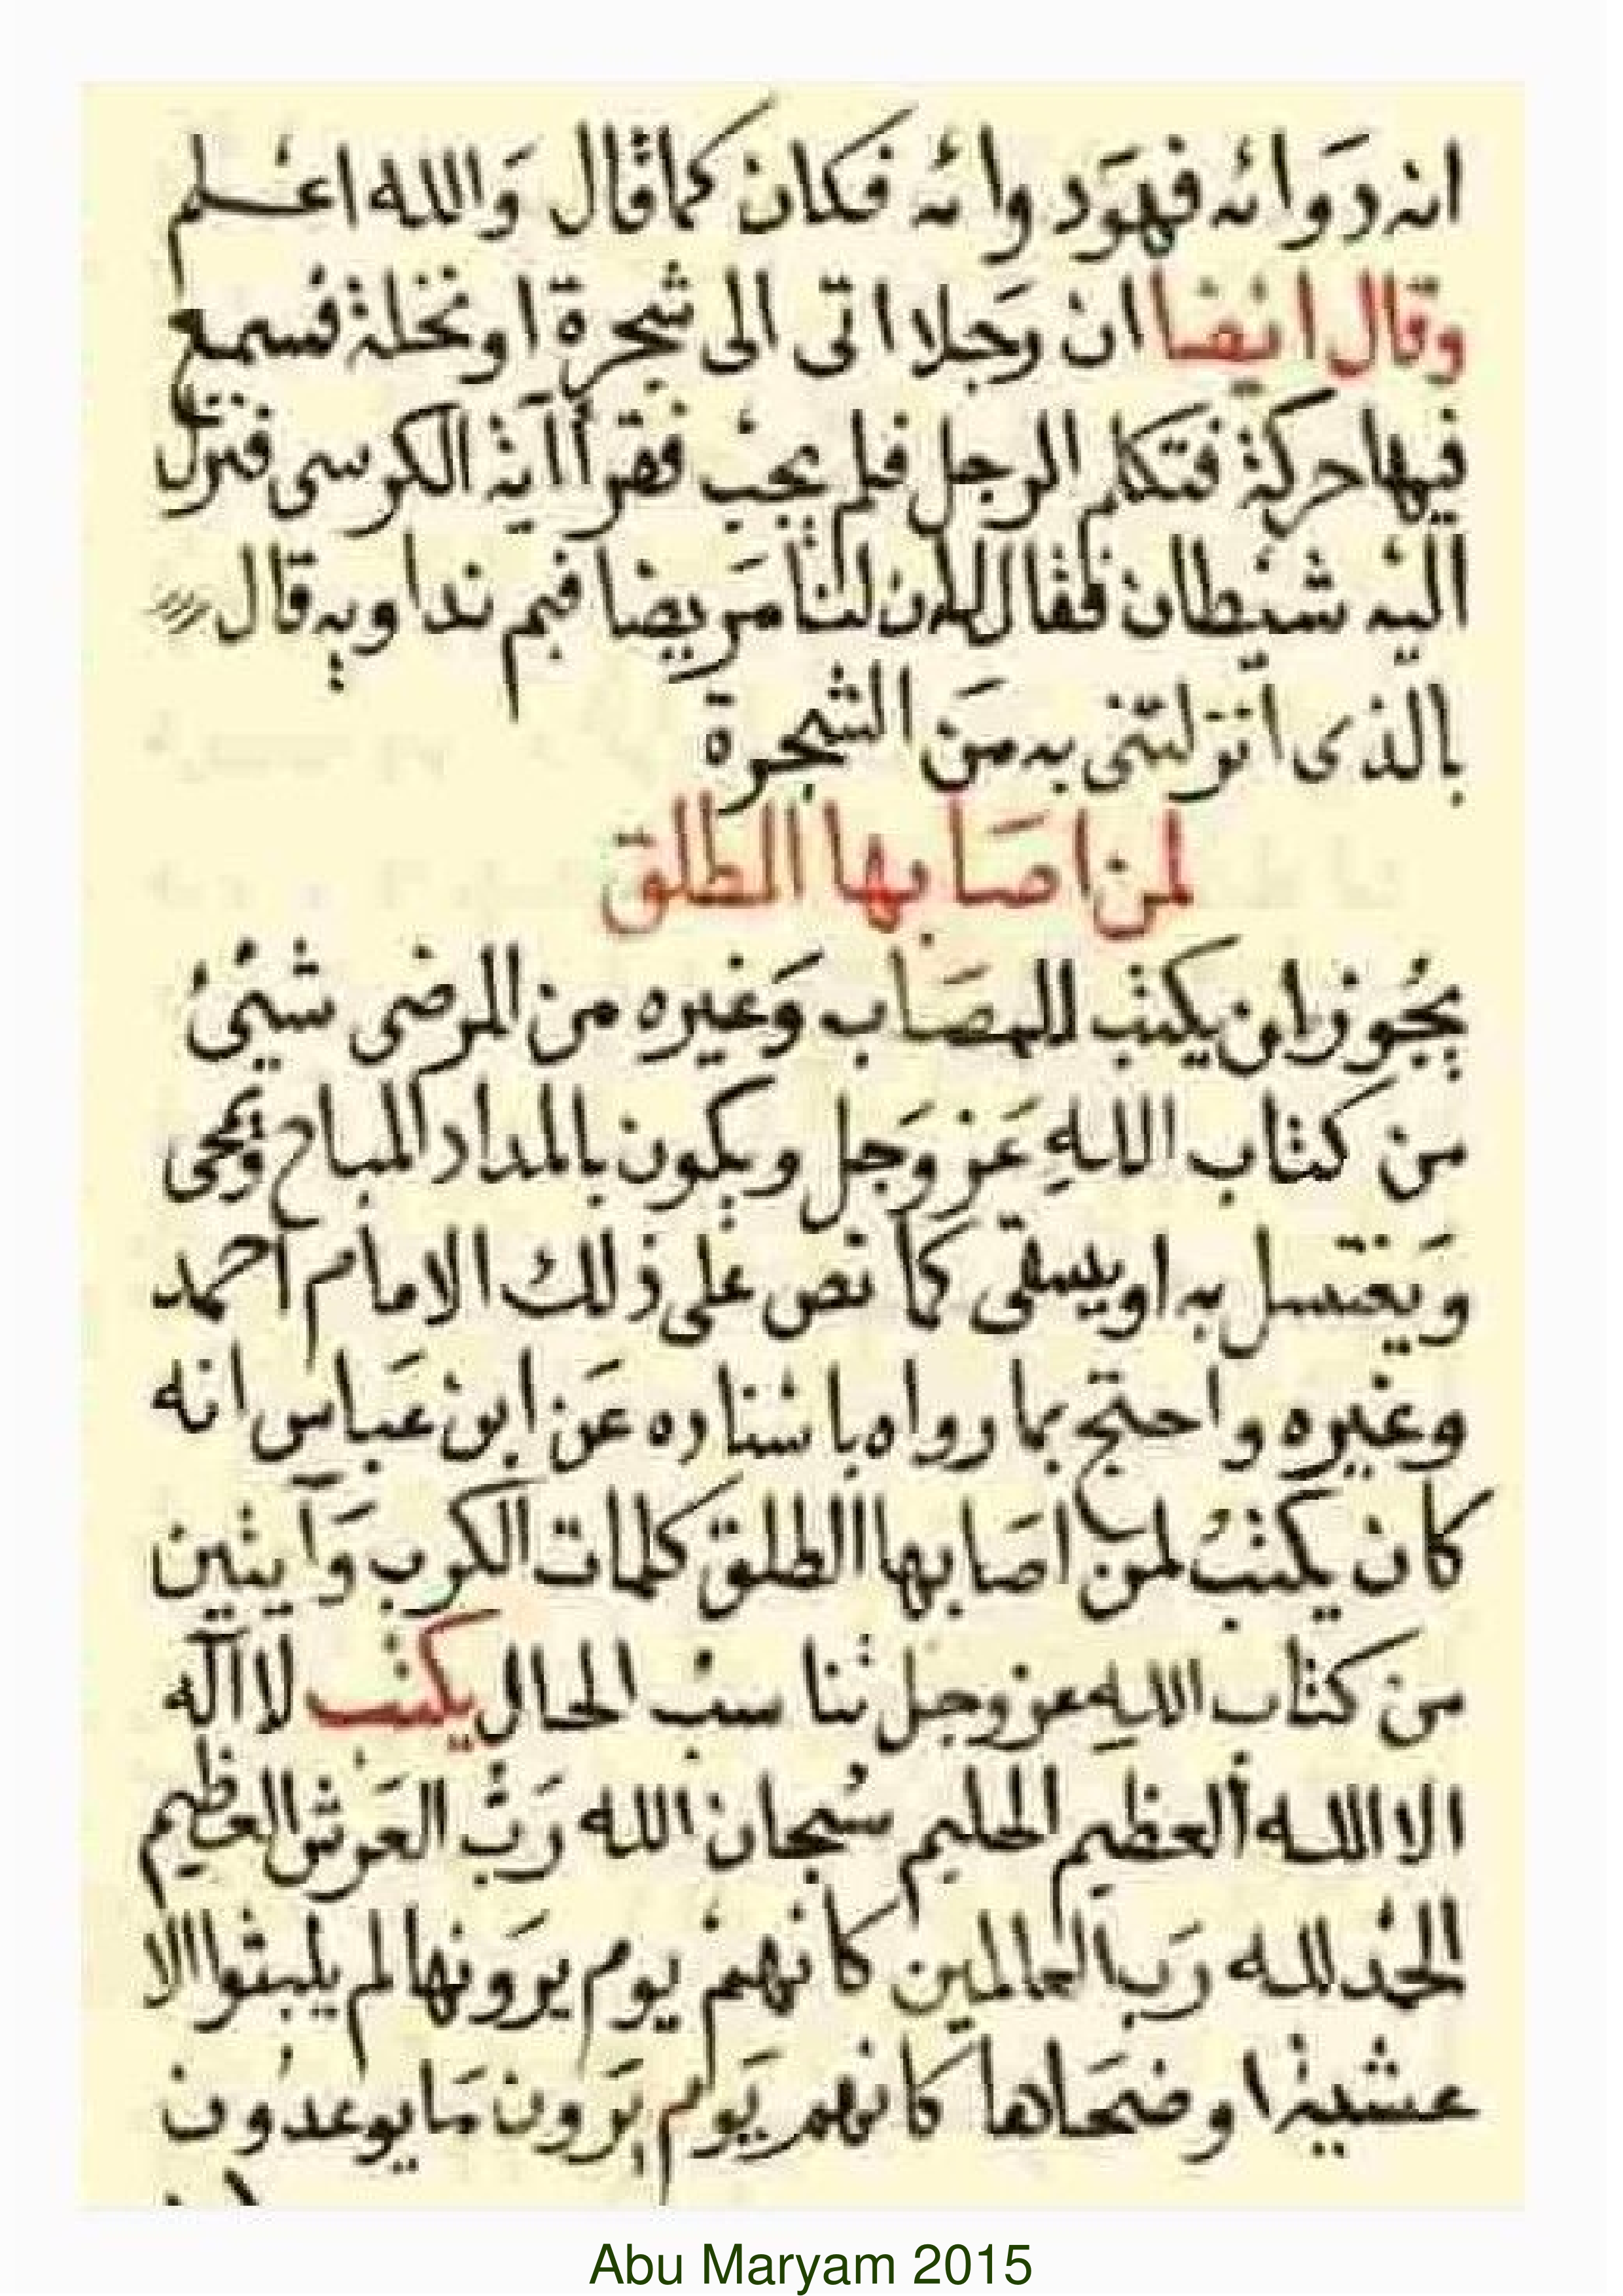 انه دَوائه فهوَ دوائه فكان كما قال وَالله اعلم
وقال ايضا ان رَجلا اتى الى شجرة او نخلة فسمع
فيها حركة فتكلم الرجل فلم يجب فقرأ آية الكرسى فنزل
اليه شيطان فقال له ان لنا مَريضا فبم نداويه قال
بالذى انزلتنى به مَن الشجرة
لمن اصَابها الطلق
يجُوز ان يكتب للمصَاب وَغيره من المرضى شيئ
من كتاب اللهِ عَز وَجل ويكون بالمداد المباح ويمحى
وَيغتسل به او يسقى كما نص على ذلك الامام احمد
وغيره واحتج بما رواه باسناده عَن ابن عَباس انه
كان يكتبُ لمن اصَابها الطلق كلمات الكرب وَآيتين
من كتاب اللهِ عز وجل تناسب الحال يكتب لا اله
الا الله العظيم الحليم سُبحان الله رَبّ العَرش العظيم
الحمد لله رَب العالمين كانهم يوم يرَونها لم يلبثوا الا
عشية او ضحَاها كانهم يَوم يَرون مَا يوعدُون
Abu Maryam 2015